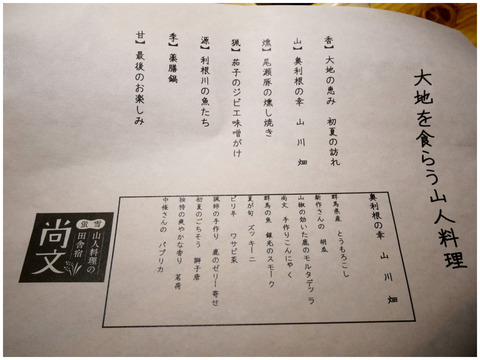 大地を食らう山人料理
香】大地の恵み 初夏の訪れ
山】奥利根の幸 山 川 畑
燻】尾瀬豚の燻し焼き
猟】茄子のジビエ味噌がけ
源】利根川の魚たち
季】薬膳鍋
甘】最後のお楽しみ
奥利根の幸 山 川 畑
群馬県産 とうもろこし
新作さんの 胡瓜
山椒の効いた鹿のモルタデッラ
尚文 手作りこんにゃく
群馬の魚 銀光のスモーク
夏が旬 ズッキーニ
ピリ辛 ワサビ菜
猟師の手作り 鹿のゼリー寄せ
初夏のごちそう 獅子唐
独特の爽やかな香り 茗荷
中條さんの パプリカ
雪
蛍
山人料理の
田舎宿
尚文